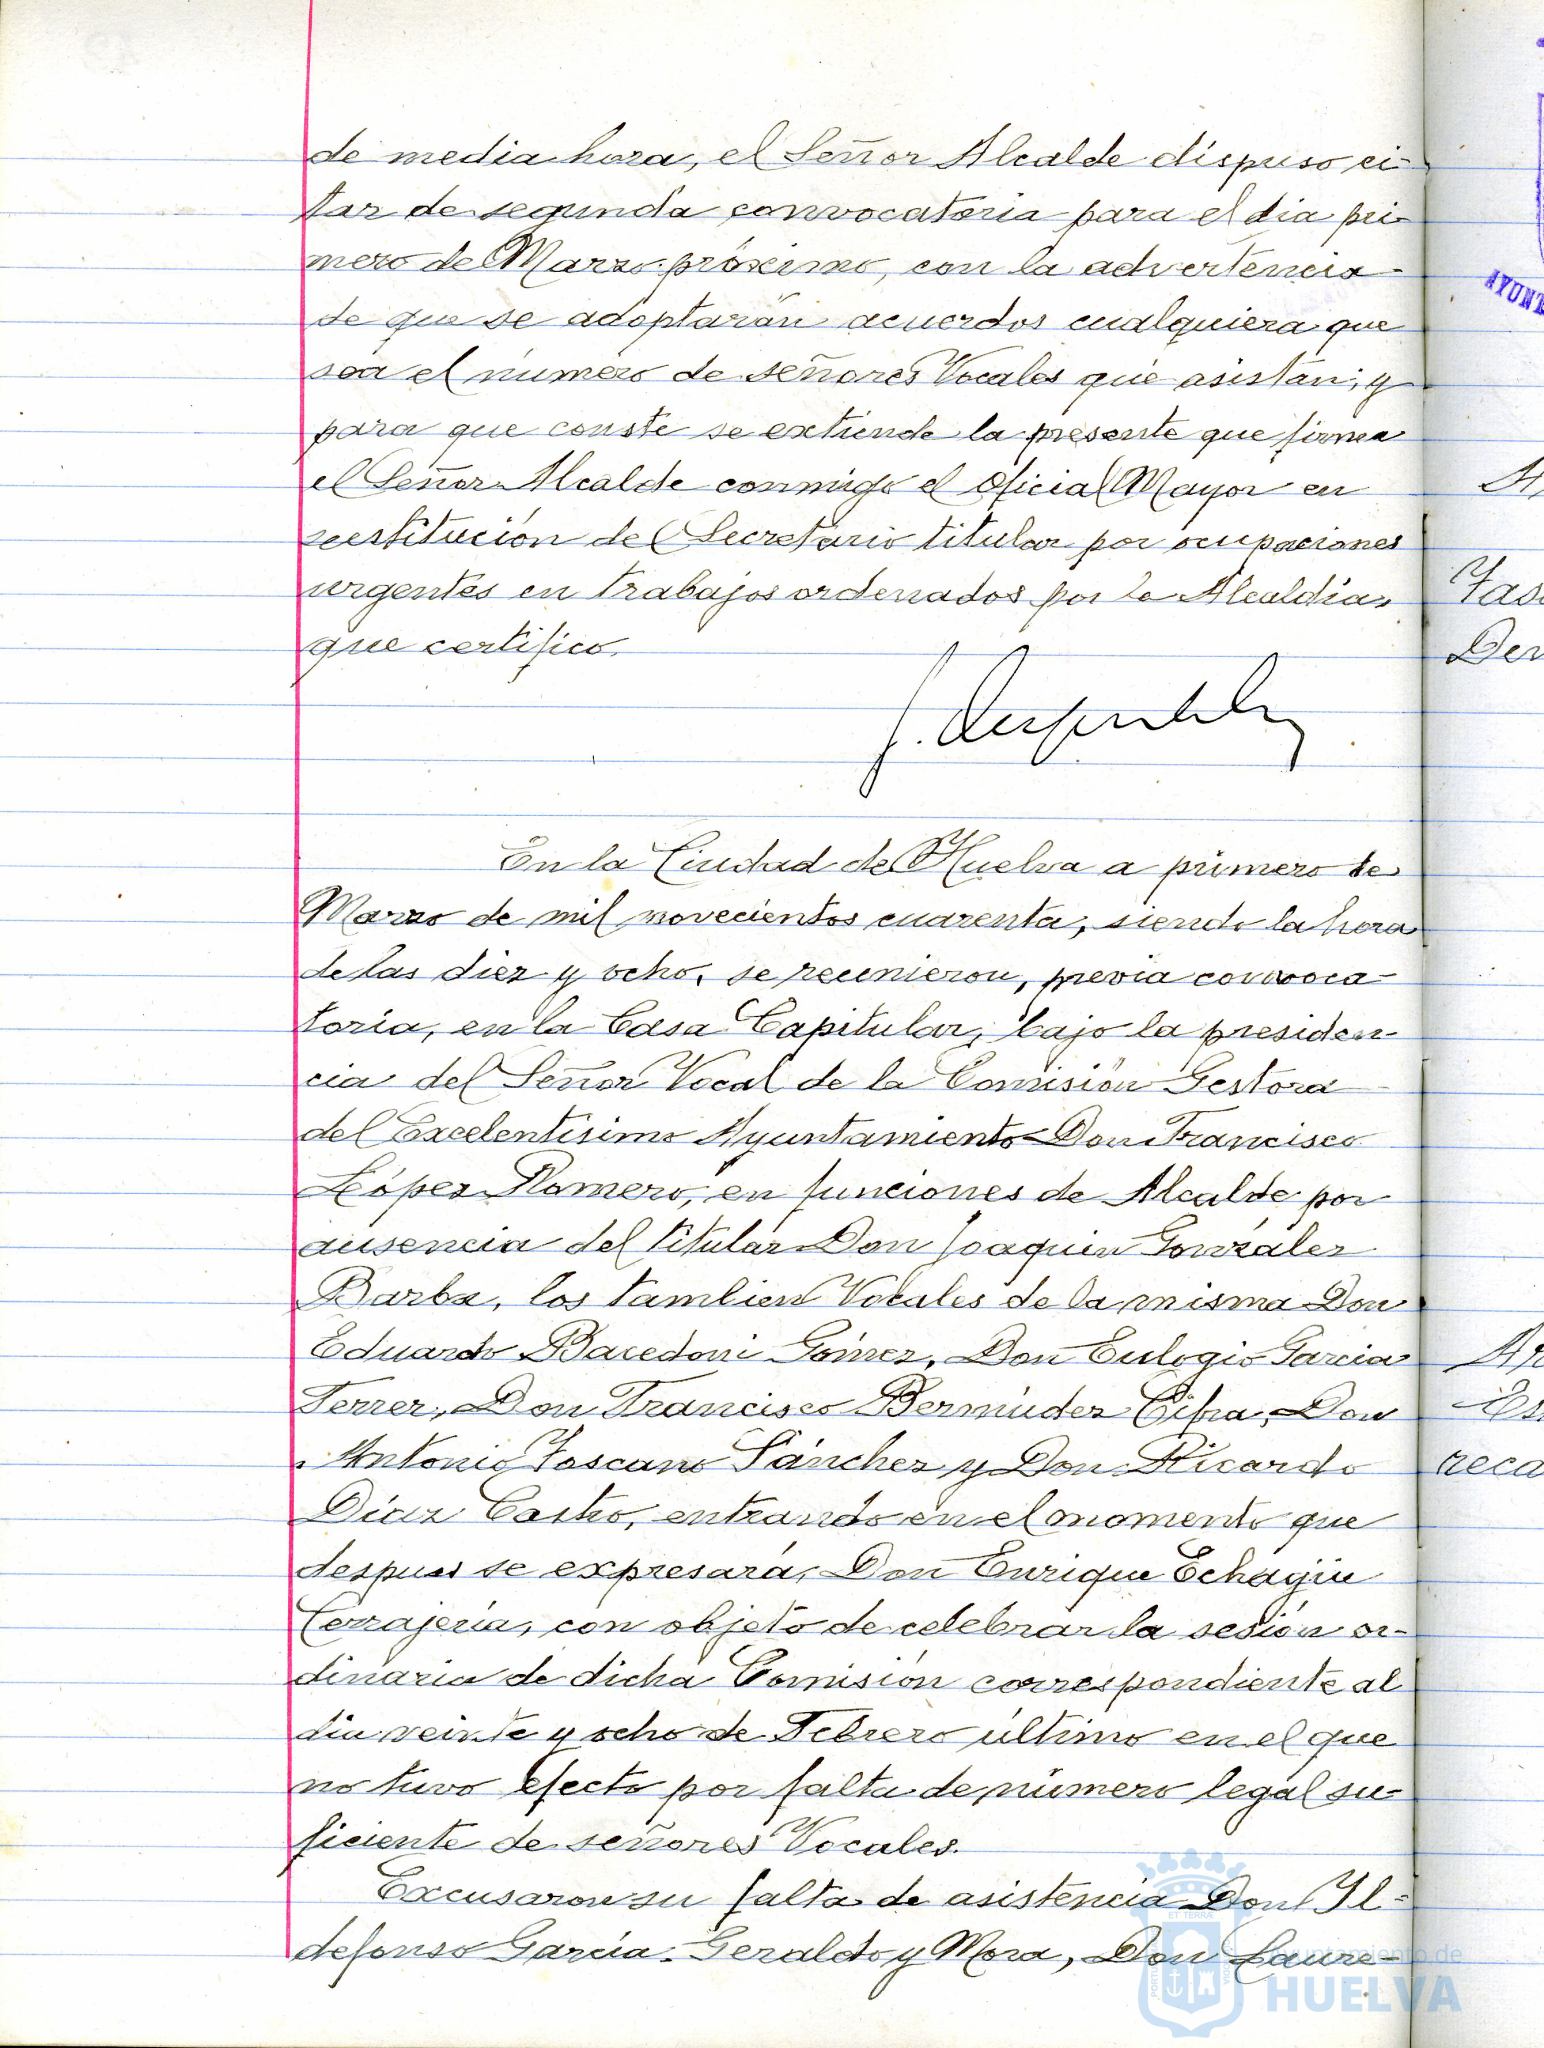 de media hora, el Señor Alcalde dispuso ci-
tar de segunda convocatoria para el dia pri-
mero de Marzo próximo, con la advertencia
de que se adoptarán acuerdos cualquiera que
sea el número de señores Vocales que asistan; y
para que conste se extiende la presente que firma
el Señor Alcalde conmigo el Oficial Mayor en
sustitución del Secretario titular por ocupaciones
urgentes en trabajos ordenados por la Alcaldia,
que certifico.
En la Ciudad de Huelva a primero de
Marzo de mil novecientos cuarenta, siendo la hora
de las diez y ocho, se reunieron, previa convoca-
toria, en la Casa Capitular, bajo la presiden-
cia del Señor Vocal de la Comisión Gestora
del Excelentísimo Ayuntamiento Don Francisco
López Romero, en funciones de Alcalde por
ausencia del titular Don Joaquin González
Barba, los tambien Vocales de la misma Don
Eduardo Bacedoni Gómez, Don Eulogio Garcia
Ferrer, Don Francisco Bermúdez Cifra, Don
Antonio Toscano Sánchez y Don Ricardo
Diaz Castro, entrando en el momento que
despues se expresará, Don Enrique Echagüe
Cerrajería, con objeto de celebrar la sesión or-
dinaria de dicha Comisión correspondiente al
dia veinte y ocho de Febrero último en el que
no tuvo efecto por falta de número legal su-
ficiente de señores Vocales.
Excusaron su falta de asistencia Don Il-
defonso Garcia-Geraldo y Mora, Don Laure-
Ayuntamiento de
HUELVA